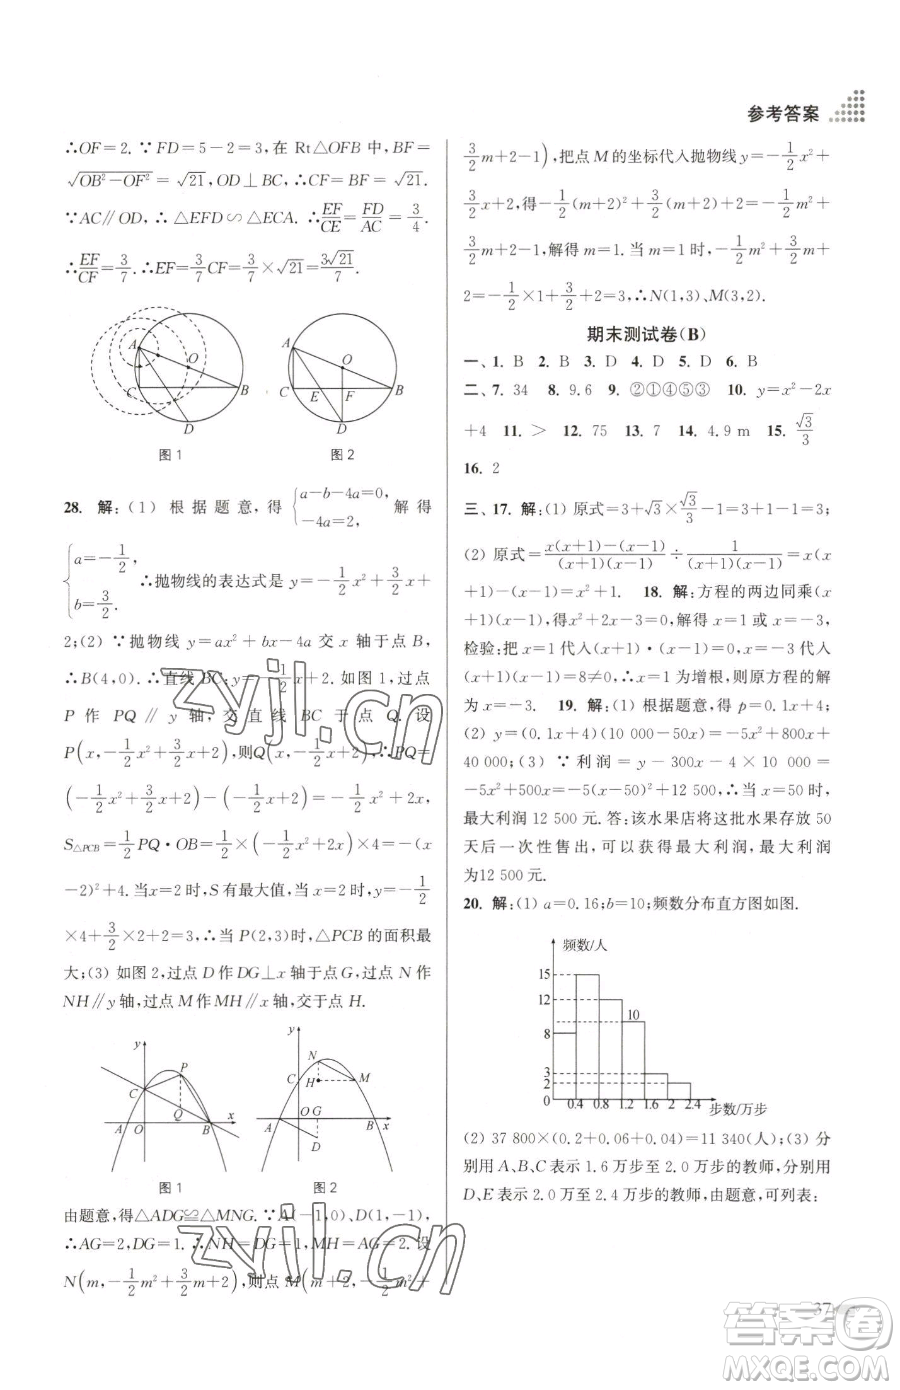 参考答案
∴OF=2. ∵FD=5-2=3,在 Rt△OFB 中,BF=
√(OB²-OF²)=√21,OD⊥BC,∴CF=BF=√21.
∵AC∥OD,∴△EFD∽△ECA. ∴EF/CE=FD/AC=3/4.
∴EF/CF=3/7. ∴EF=3/7CF=3/7×√21=3√21/7.
A O C B D
图 1
A O C E F B D
图 2
28. 解:(1) 根据题意,得{a-b-4a=0, -4a=2, 解得
{a=-1/2, b=3/2. ∴抛物线的表达式是 y=-1/2x²+3/2x+
2;(2) ∵抛物线 y=ax²+bx-4a 交 x 轴于点 B,
∴B(4,0). ∴直线 BC:y=-1/2x+2. 如图 1,过点
P 作 PQ∥y 轴,交直线 BC 于点 Q. 设
P(x,-1/2x²+3/2x+2),则Q(x,-1/2x+2). ∴PQ=
(-1/2x²+3/2x+2)-(-1/2x+2)=-1/2x²+2x,
S△PCB=1/2PQ·OB=1/2×(-1/2x²+2x)×4=-(x
-2)²+4. 当x=2 时,S 有最大值,当 x=2 时,y=-1/2
×4+3/2×2+2=3,∴当 P(2,3)时,△PCB 的面积最
大;(3) 如图 2,过点 D 作 DG⊥x 轴于点 G,过点 N 作
NH∥y 轴,过点 M 作 MH∥x 轴,交于点 H.
y P C Q A O B x
图 1
y N C H M A O G B x D
图 2
由题意,得△ADG≌△MNG. ∵A(-1,0),D(1,-1),
∴AG=2,DG=1. ∴NH=DG=1,MH=AG=2. 设
N(m,-1/2m²+3/2m+2),则点 M(m+2,-1/2m²+
3/2m+2-1),把点 M 的坐标代入抛物线 y=-1/2x²+
3/2x+2,得-1/2(m+2)²+3/2(m+2)+2=-1/2m²+
3/2m+2-1,解得 m=1. 当 m=1 时,-1/2m²+3/2m+
2=-1/2×1+3/2+2=3,∴N(1,3)、M(3,2).
期末测试卷(B)
一、1. B 2. B 3. D 4. D 5. D 6. B
二、7. 34 8. 9.6 9. ②①④⑤③ 10. y=x²-2x
+4 11. > 12. 75 13. 7 14. 4.9 m 15. √3/3
16. 2
三、17. 解:(1) 原式=3+√3×√3/3-1=3+1-1=3;
(2) 原式=x(x+1)-(x-1)/(x+1)(x-1)÷1/(x+1)(x-1)=x(x
+1)-(x-1)=x²+1. 18. 解:方程的两边同乘(x
+1)(x-1),得x²+2x-3=0,解得x=1 或x=-3,
检验:把 x=1 代入(x+1)·(x-1)=0,把 x=-3 代入
(x+1)(x-1)=8≠0,∴x=1 为增根,则原方程的解
为x=-3. 19. 解:(1) 根据题意,得 p=0.1x+4;
(2) y=(0.1x+4)(10 000-50x)=-5x²+800x+
40 000;(3) ∵利润=y-300x-4×10 000=
-5x²+500x=-5(x-50)²+12 500,∴当 x=50 时,
最大利润 12 500 元. 答:该水果店将这批水果存放 50
天后一次性售出,可以获得最大利润,最大利润
为12 500 元.
20. 解:(1) a=0.16;b=10;频数分布直方图如图.
频数/人
15
12
10
8
3
2
0.4 0.8 1.2 1.6 2 2.4 步数/万步
(2) 37 800×(0.2+0.06+0.04)=11 340(人);(3) 分
别用 A、B、C 表示 1.6 万步至 2.0 万步的教师,用
D、E 表示 2.0 万至 2.4 万步的教师,由题意,可列表:
37
zyjl.cn
zyjl.cn
答案圈
MXQE.COM